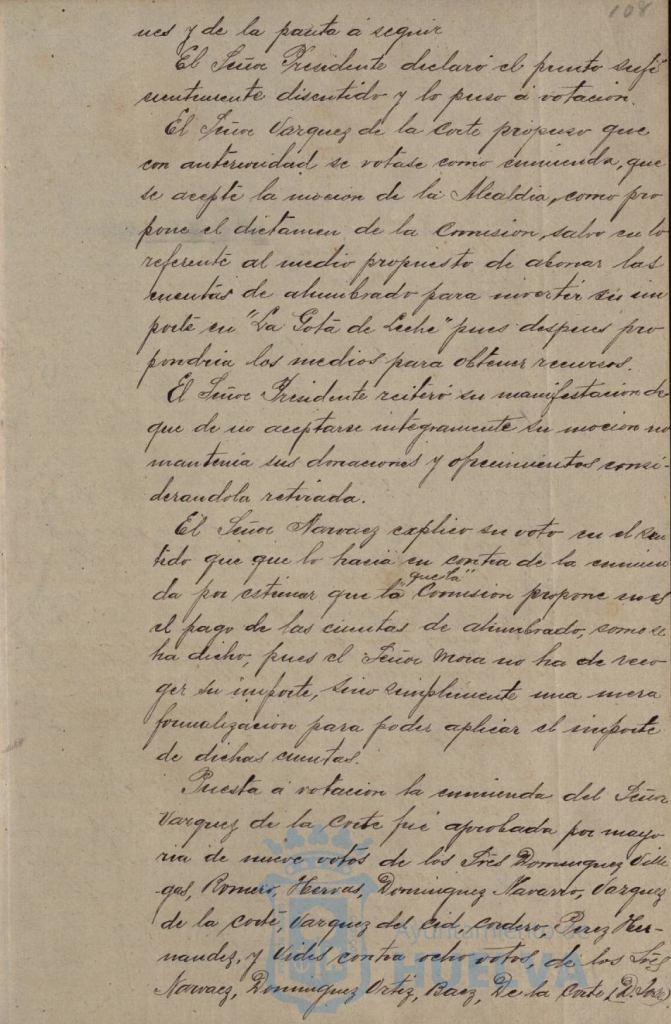 108
nes y de la pauta á seguir
El Señor Presidente declaró el punto sufi
cientemente discutido y lo puso á votacion.
El Señor Vazquez de la Corte propuso que
con anterioridad se votase como enmienda, que
se acepte la mocion de la Alcaldia, como pro
pone el dictamen de la Comision, salvo en lo
referente al medio propuesto de abonar las
cuentas de alumbrado para invertir su im
porte en "La Gota de Leche" pues despues pro
pondria los medios para obtener recursos.
El Señor Presidente reiteró su manifestacion de
que de no aceptarse integramente su mocion no
mantenia sus donaciones y ofrecimientos consi-
derandola retirada.
El Señor Narvaez explico su voto en el sen
tido que que lo hacia en contra de la enmien
da por estimar que la "que la" Comision propone no es
el pago de las cuentas de alumbrado, como se
ha dicho, pues el Señor Mora no ha de reco
ger su importe, sino simplemente una mera
formalizacion para poder aplicar el importe
de dichas cuentas.
Puesta á votacion la enmienda del Señor
Vazquez de la Corte fué aprobada por mayo
ria de nueve votos de los Sres Dominguez Ville
gas, Romero, Hervas, Dominguez Navarro, Vazquez
de la Corte, Vazquez del Cid, Cordero, Perez Her-
nandez, y Vides contra ocho votos, de los Sres
Narvaez, Dominguez Ortiz, Baez, De la Corte (D. Jose)
Ayuntamiento de
HUELVA